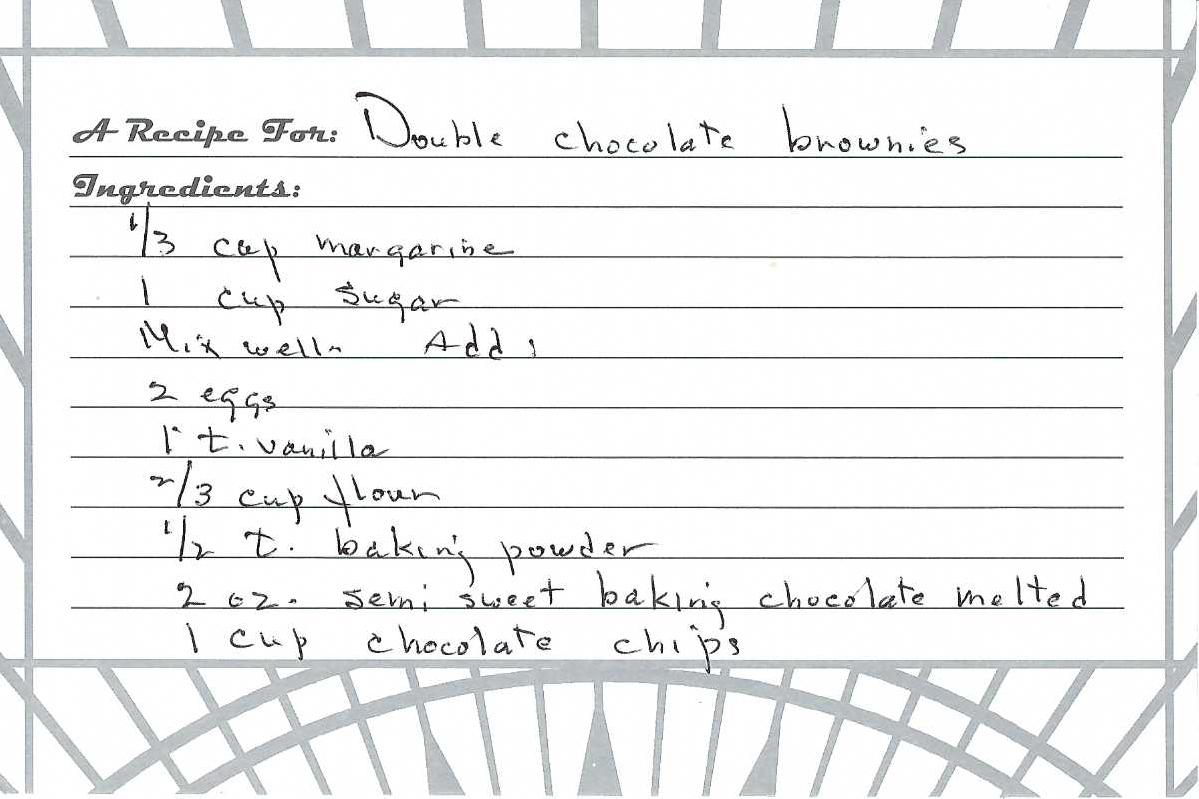 A Recipe For: Double chocolate brownies
Ingredients:
1/3 cup margarine
1 cup sugar
Mix well. Add:
2 eggs
1 t. vanilla
2/3 cup flour
1/2 t. baking powder
2 oz. semi sweet baking chocolate melted
1 cup chocolate chips